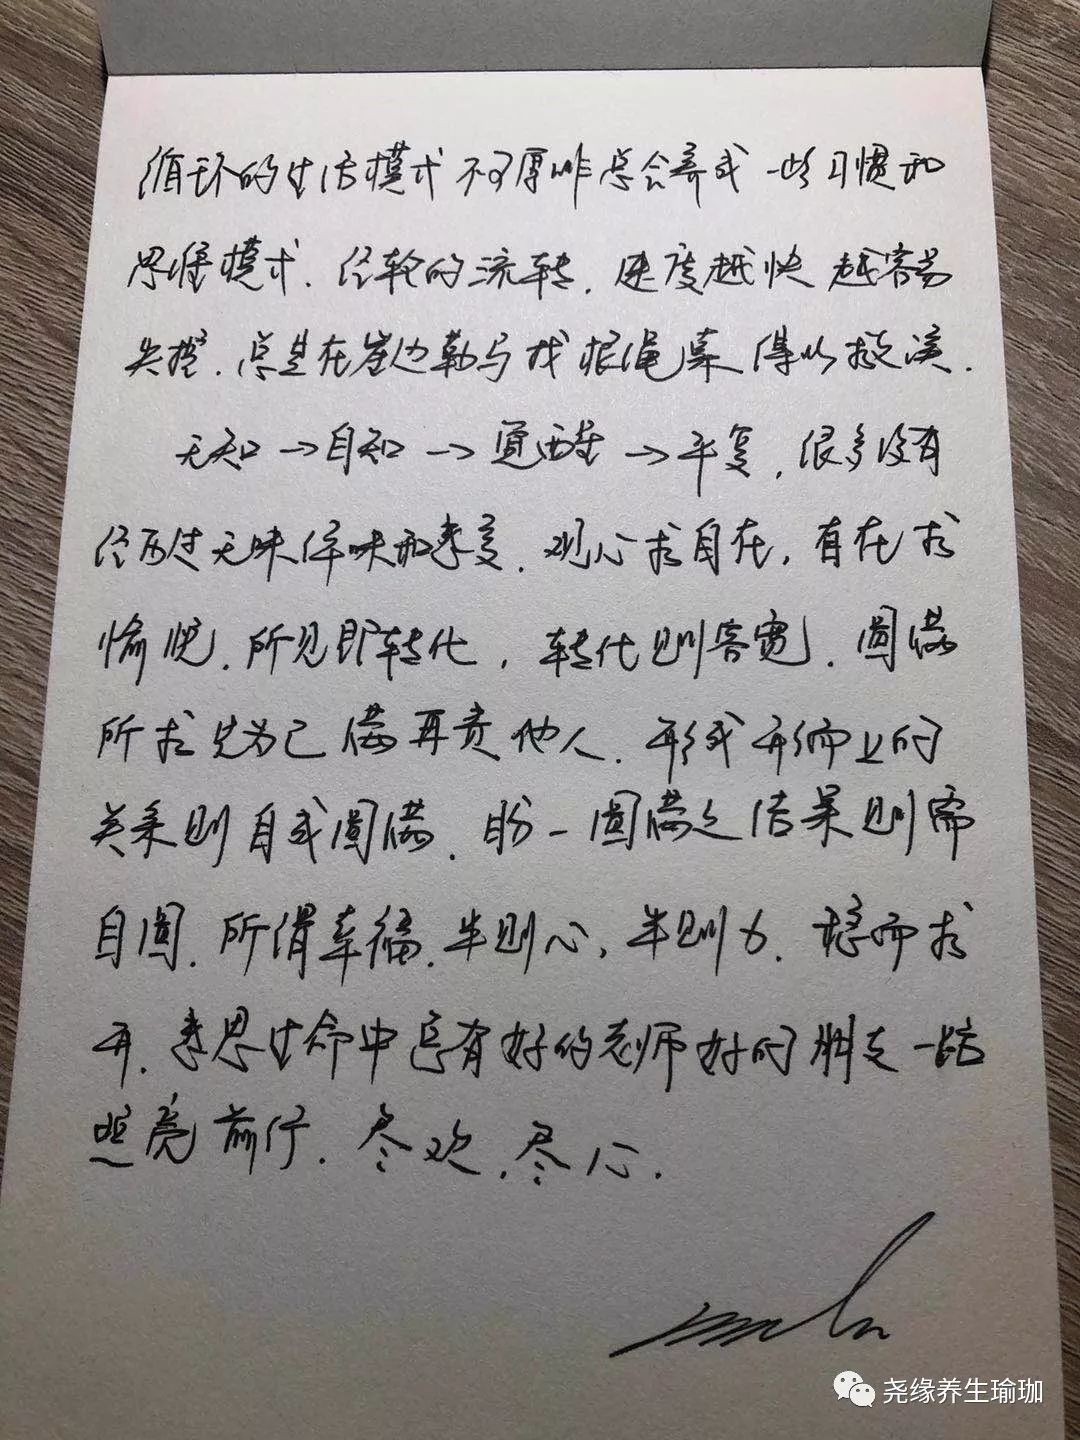 循环的生活模式不可厚非总会养成一些习惯和
思维模式.经轮的流转.速度越快越容易
失控.总是在崖边勒马找根绳索得以救溪.
无知→自知→觉醒→平复.很多没有
经历过无味体味和素变.观心求自在,自在求
愉悦.所见即转化,转化则容宽.圆满
所求先为己满再责他人.形成形而上的
关系则自成圆满.盼一圆满之结果则需
自圆.所谓幸福.半则心,半则力.稳而求
升.素思生命中总有好的老师好的朋友一路
照亮前行.尽欢.尽心.
尧缘养生瑜珈